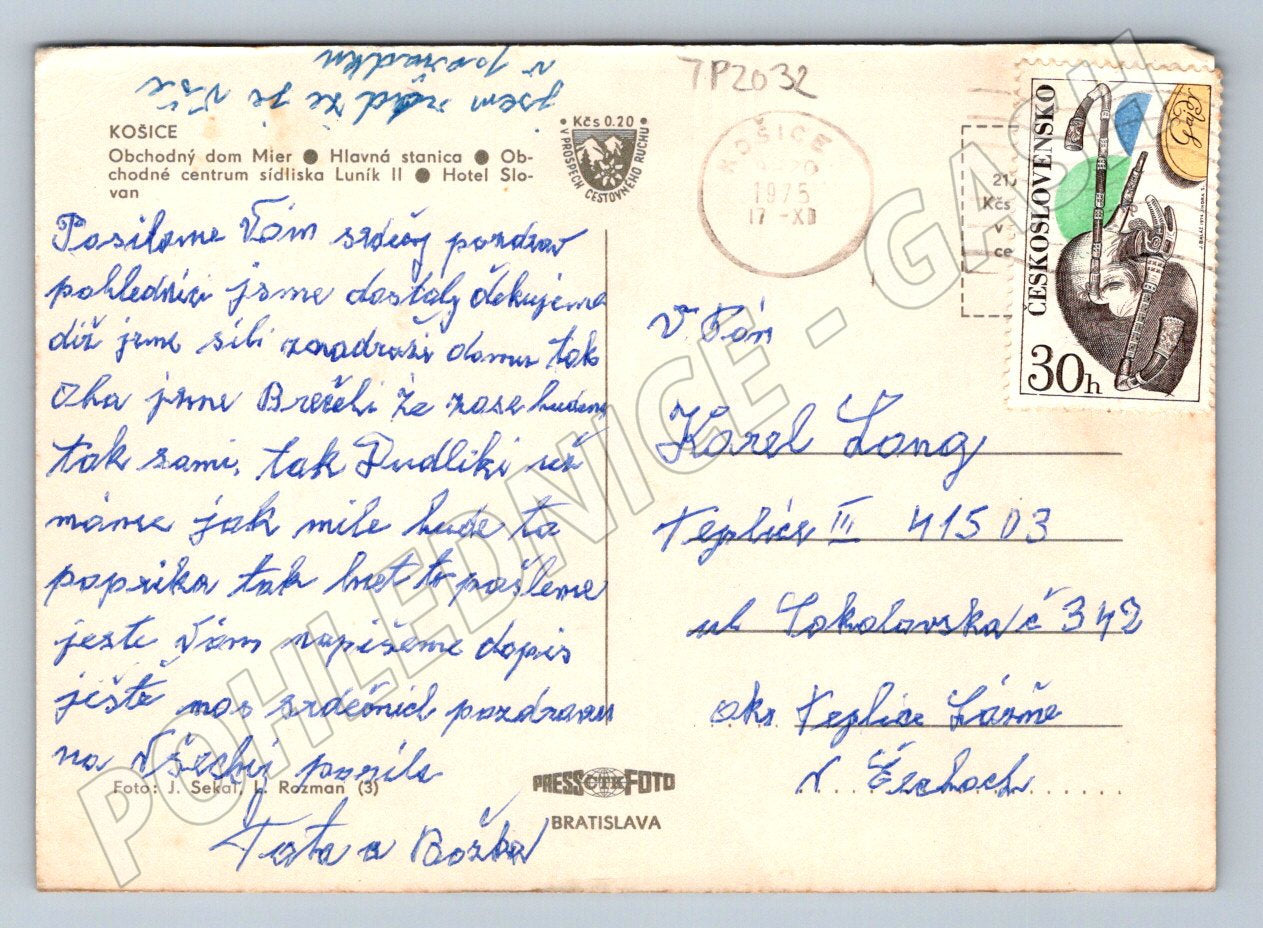 7P2032
jsem rád že je vše
v pořádku
KOŠICE
Obchodný dom Mier ● Hlavná stanica ● Ob-
chodné centrum sídliska Luník II ● Hotel Slo-
van
• Kčs 0.20 •
V PROSPECH CESTOVNÉHO RUCHU
KOŠICE
1975
17 -XII
21,
Kčs
v
ce
ČESKOSLOVENSKO
30h
Posílame Vám srdečný pozdrav
pohlednici jsme dostaly děkujeme
diž jsme šili znadraži domu tak
oba jsme Brečeli že zase budeme
tak sami, tak Dudliki už
máme jak mile bude ta
paprika tak hnet to pošleme
jestě Vám napíšeme dopis
ještě mos srdečnich pozdravu
na Všechy posila
Foto: J. Sekal, L. Rozman (3)
Teta a Božka
PRESS ČTK FOTO
BRATISLAVA
V. Pán
Karel Lang
Teplice III 415 03
ul Sokolovska č 342
okr Teplice Lázně
v Čechach
POHLEDNICE - GASH